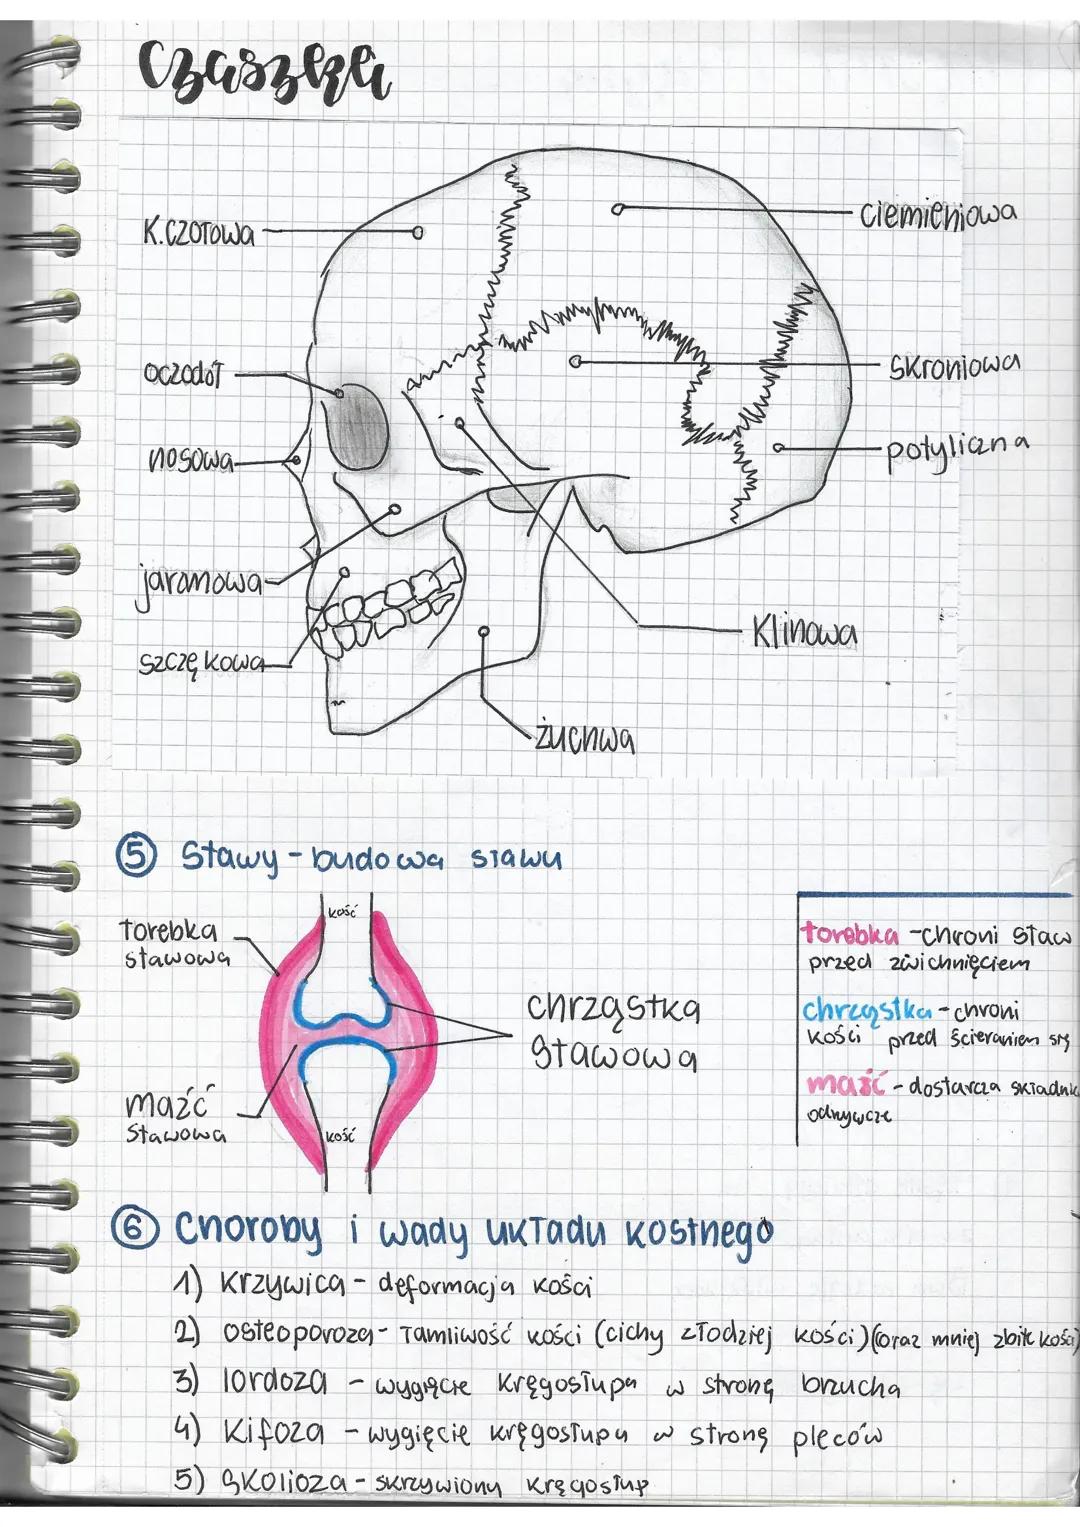 Czaszka
K.czołowa
ciemieniowa
oczodół
skroniowa
nosowa
potyliczna
jarzmowa
szczękowa
klinowa
żuchwa
5 Stawy - budowa stawu
kość
torebka
stawowa
chrząstka
stawowa
maźć
stawowa
kość
torebka - chroni staw
przed zwichnięciem
chrząstka - chroni
kości przed ścieraniem się
maźć - dostarcza składnik
odżywcze
6 Choroby i wady układu kostnego
1) krzywica - deformacja kości
2) osteoporoza - łamliwość kości (cichy złodziej kości) (oraz mniej zbite kości)
3) lordoza - wygięcie kręgosłupa w stronę brzucha
4) kifoza - wygięcie kręgosłupa w stronę pleców
5) skolioza - skrzywiony kręgosłup